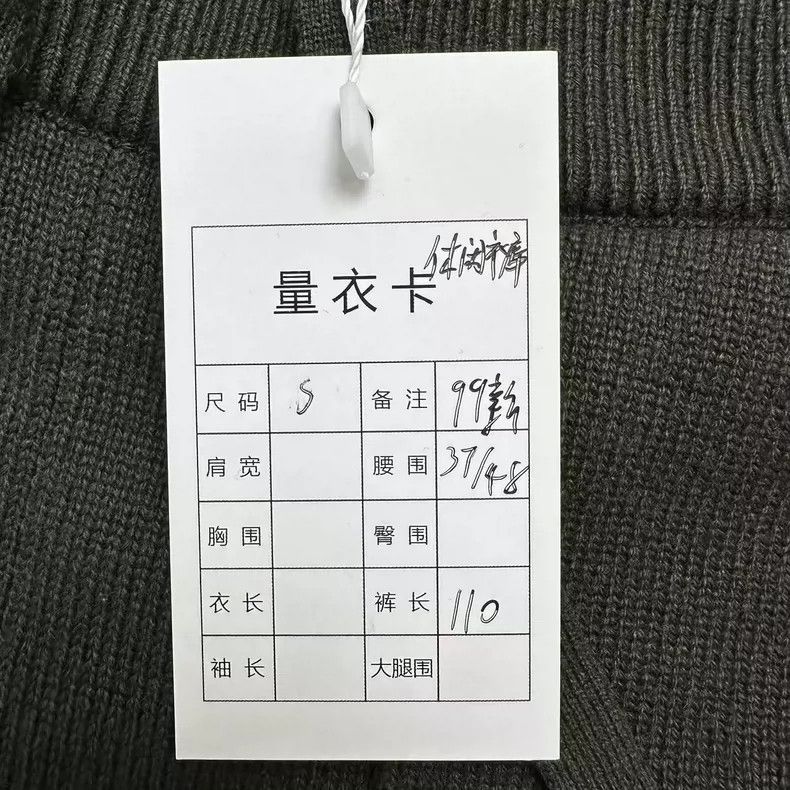 休闲裤
量衣卡
尺码 S 备注 99新
肩宽 腰围 37/48
胸围 臀围
衣长 裤长 110
袖长 大腿围